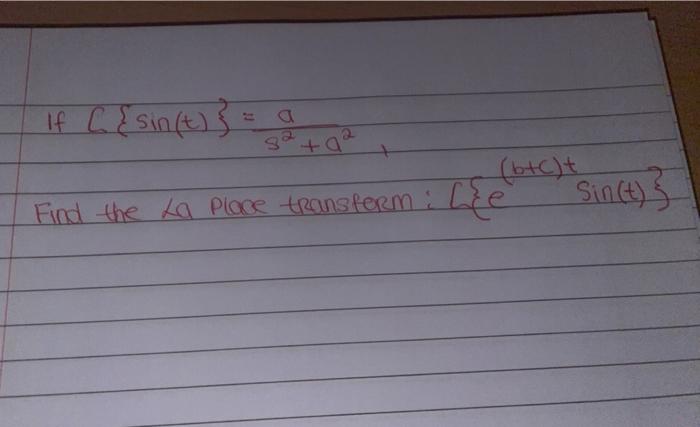 If L{sin(t)} = a / s² + a² ,
Find the La Place transferm : L{e^(b+c)t Sin(t)}